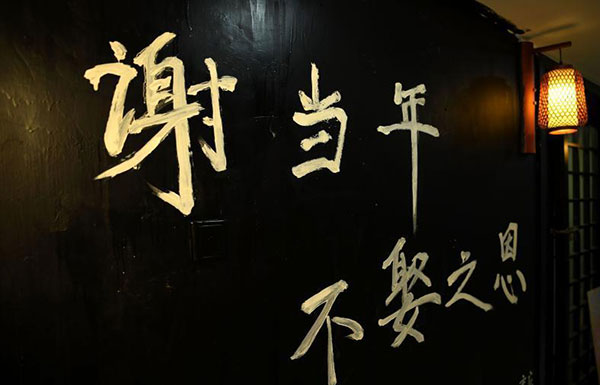 谢当年
不娶之恩